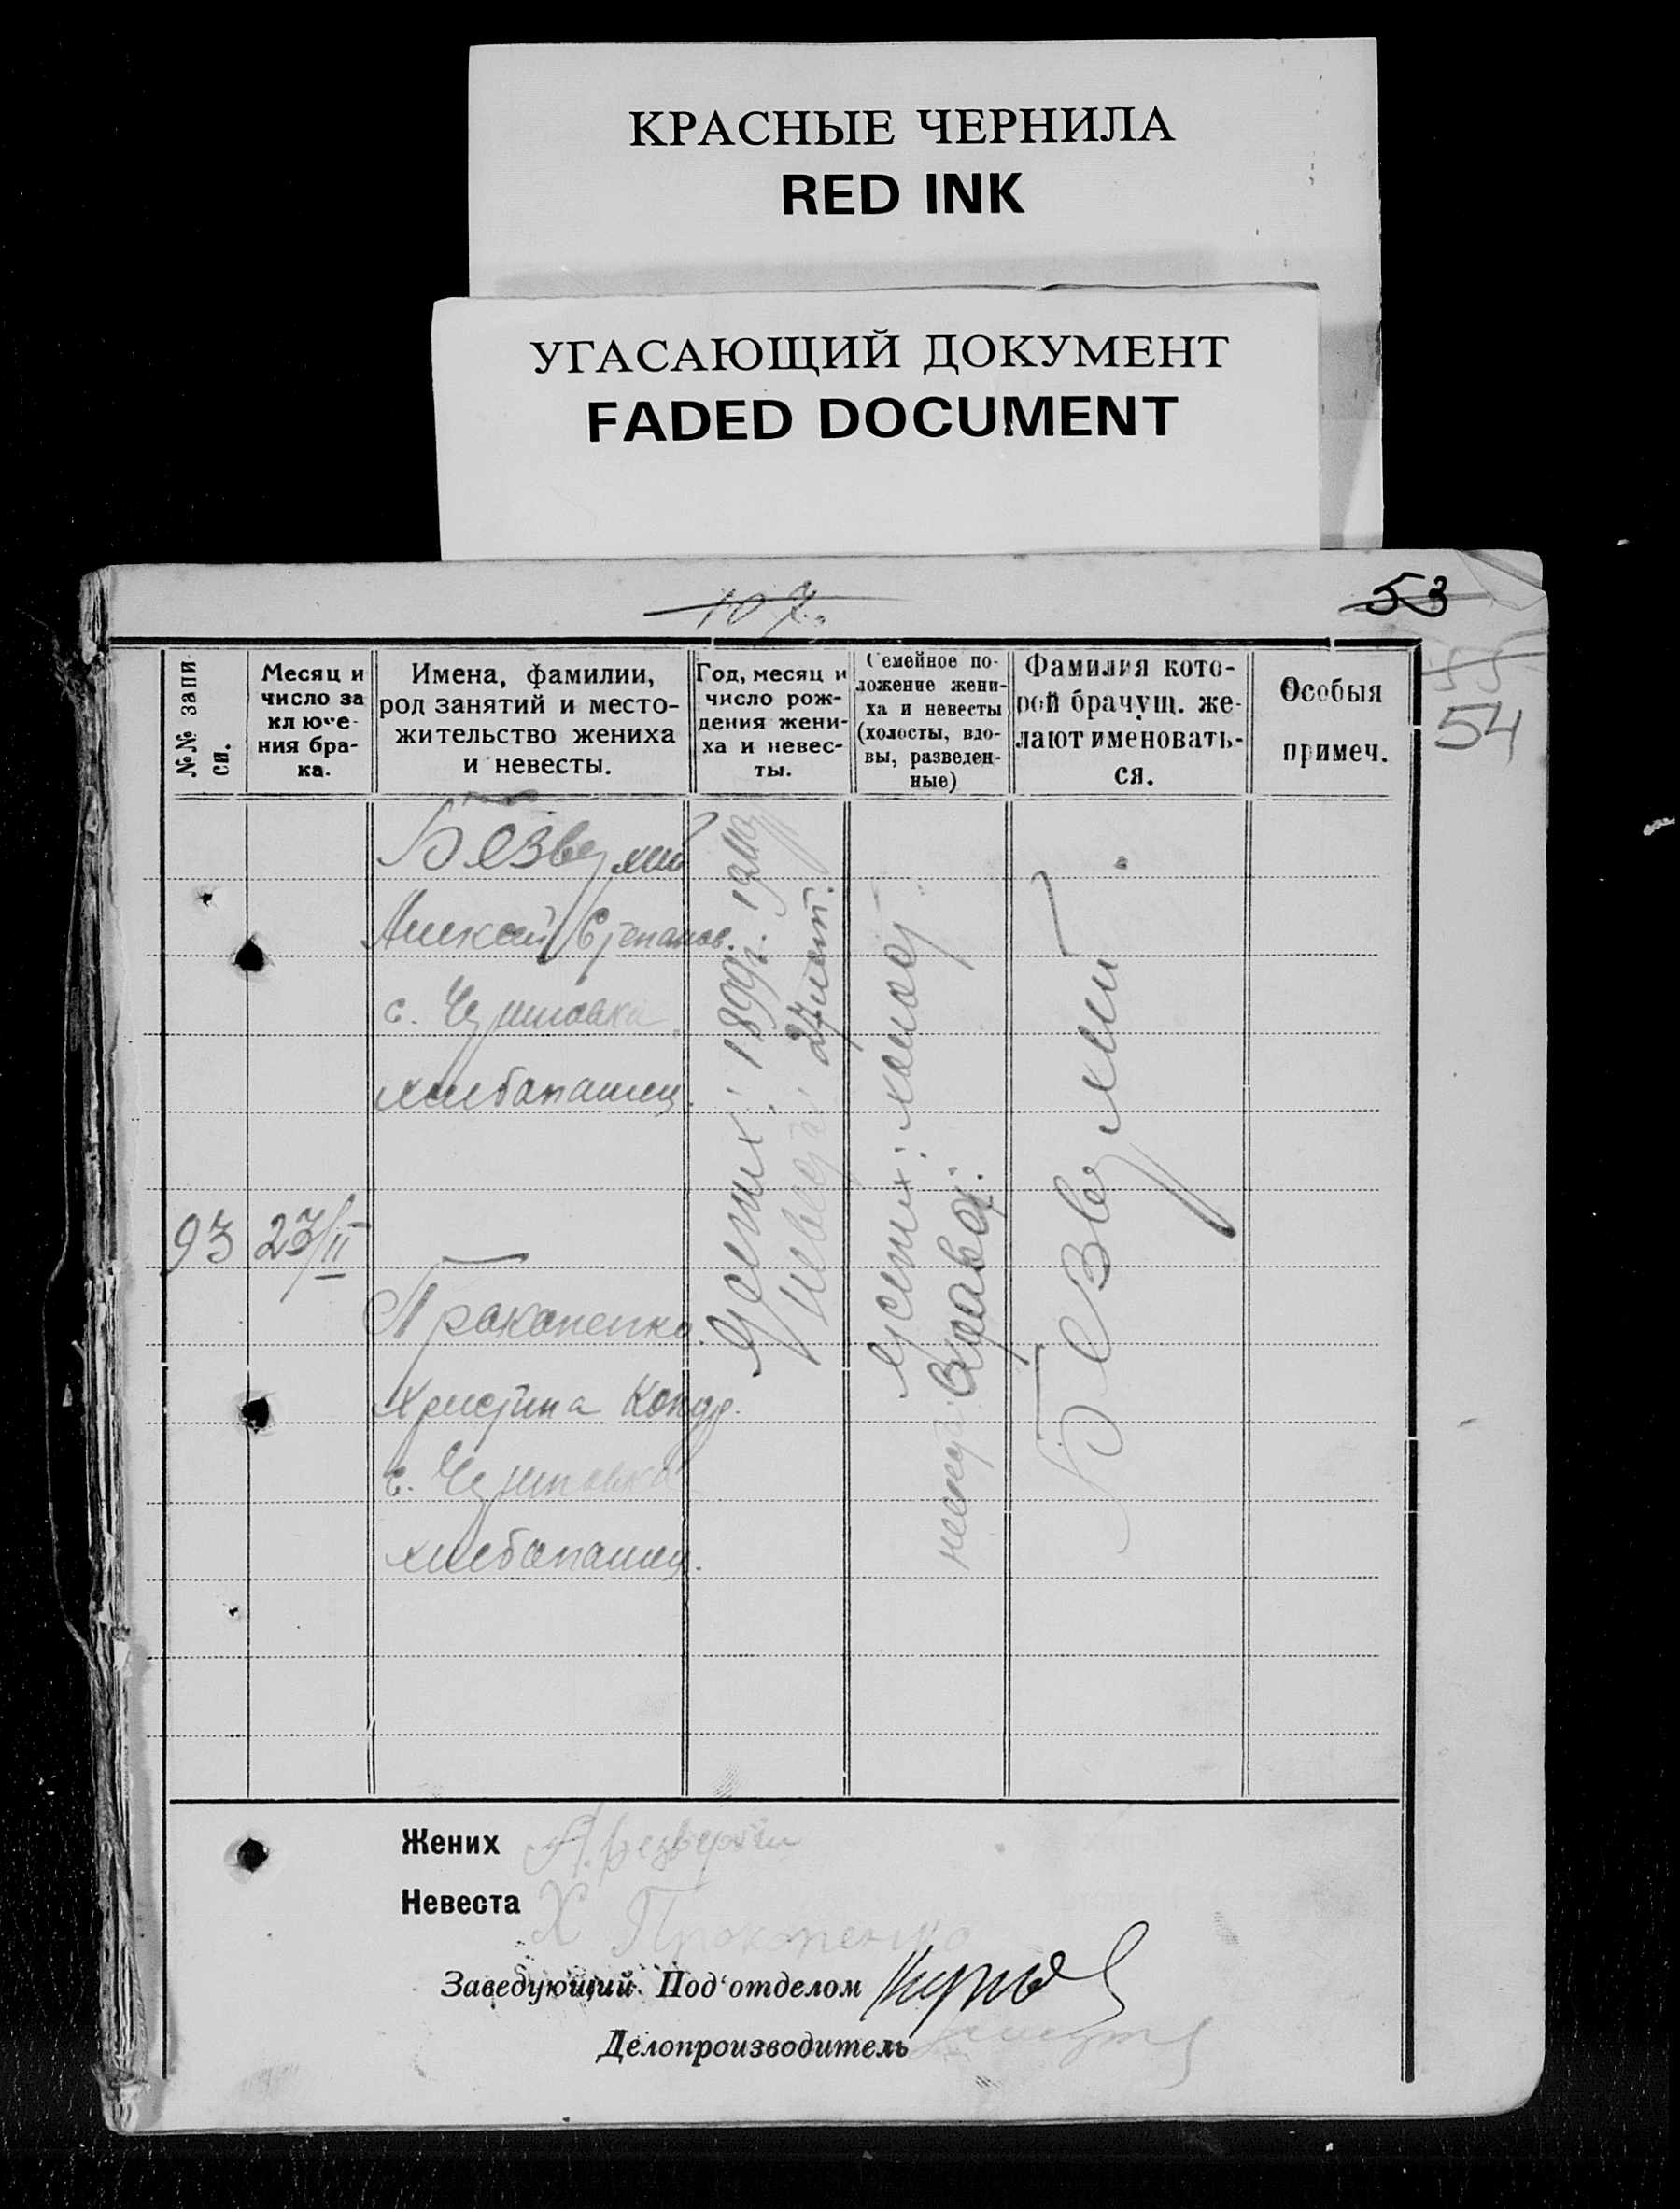 КРАСНЫЕ ЧЕРНИЛА
RED INK
УГАСАЮЩИЙ ДОКУМЕНТ
FADED DOCUMENT
107.
53
55
54
№№ запи
си.
Месяц и
число за
кл юче-
ния бра-
ка.
Имена, фамилии,
род занятий и место-
жительство жениха
и невесты.
Год, месяц и
число рож-
дения жени-
ха и невес-
ты.
Семейное по-
ложение жени-
ха и невесты
(холосты, вдо-
вы, разведен-
ные)
Фамилия кото-
рой брачущ. же-
лают именовать-
ся.
Особыя
примеч.
93
23/II
Безверхий
Алексей Степанов.
с.
хлебопашец.
Прокопенко.
Христина Конд.
с.
хлебопашец.
Жених: 1899г.
Невеста: 27 лет.
Жених: холост
невеста: вдова.
Безверхий
Жених А. Безверхий
Невеста Х Прокопенко
Заведующий Под'отделом
Делопроизводитель